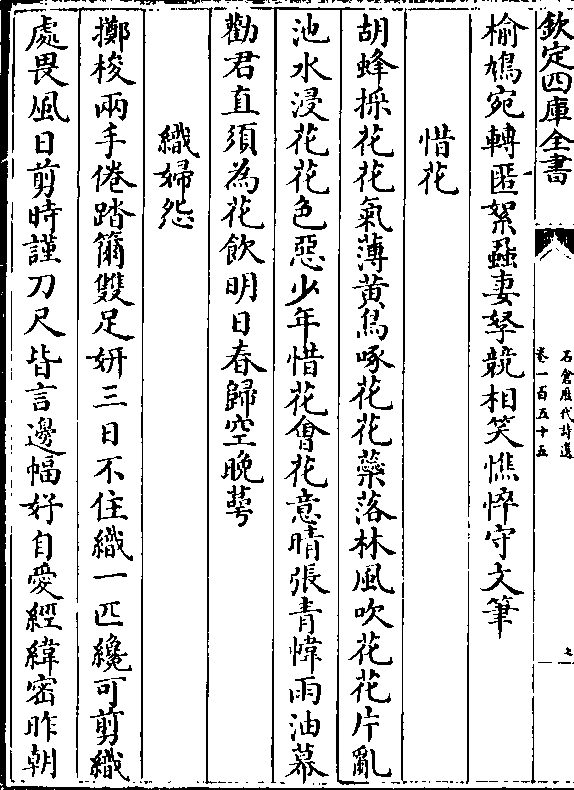 欽定四庫全書
石倉歷代詩選
卷一百五十五
七
榆鳩宛轉匿絮蝨妻孥競相笑憔悴守文筆
惜花
胡蜂採花花氣薄黄鳥啄花花蘂落林風吹花花片亂
池水浸花花色惡少年惜花會花意晴張青幃雨油幕
勸君直須為花飲明日春歸空晚萼
織婦怨
擲梭兩手倦踏籋雙足妍三日不住織一匹纔可剪織
處畏風日剪時謹刀尺皆言邊幅好自愛經緯密昨朝